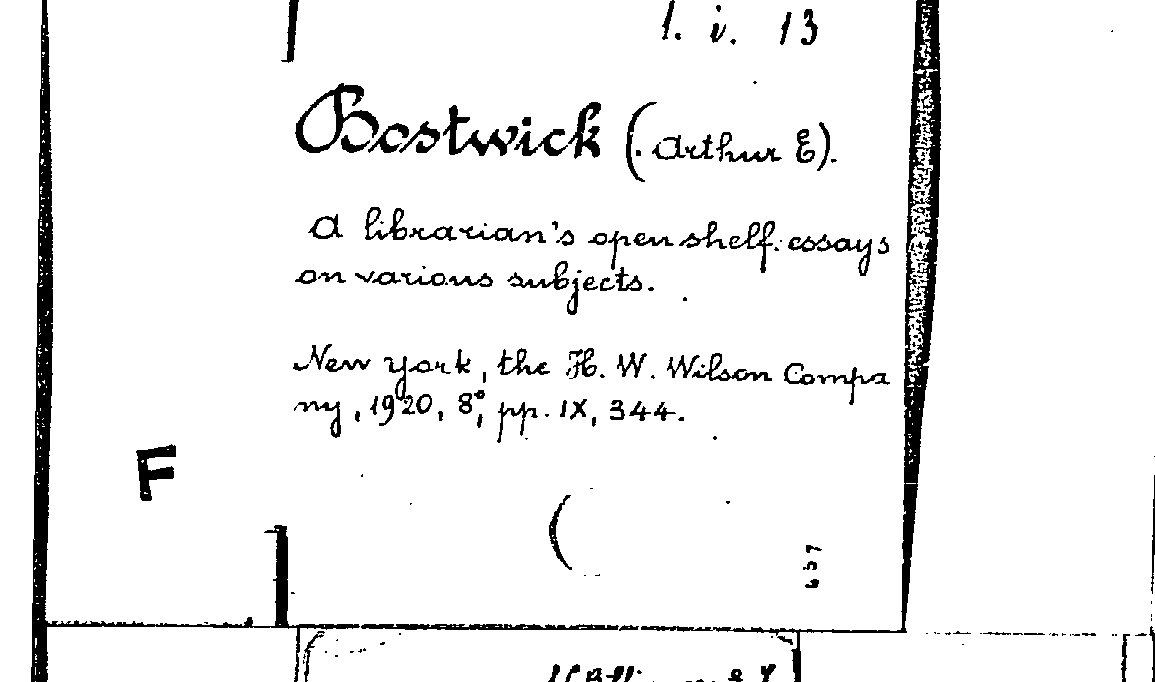 1. i. 13
Bostwick (Arthur E).
A librarian's open shelf: essays
on various subjects.
New York, the H. W. Wilson Compa
ny, 1920, 8°, pp. IX, 344.
F
637